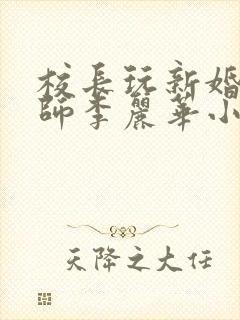 校長玩新婚
師李麗華小
天降之大任